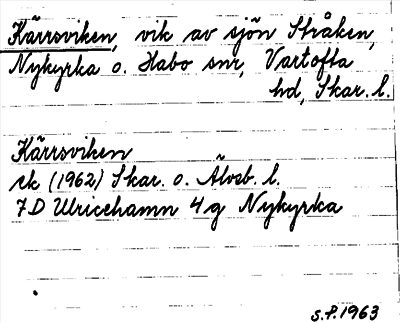 Kärrsviken, vik av sjön Stråken,
Nykyrka o. Habo snr, Vartofta
hd, Skar. l.
Kärrsviken
rk (1962) Skar. o. Älvsb. l.
7D Ulricehamn 4g Nykyrka
S.P. 1963